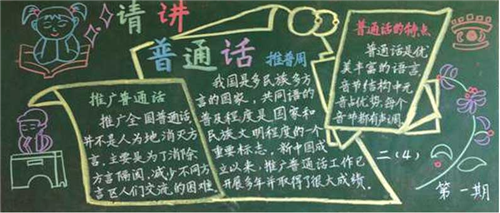 请讲
普通话
推普周
推广普通话
推广全国普通话,
并不是人为地消灭方
言,主要是为了消除
方言隔阂,减少不同方
言区人们交流的困难
我国是多民族多方
言的国家,共同语的
普及程度是国家和
民族文明程度的一个
重要标志。新中国成
立以来,推广普通话工作已
开展多年并取得了很大成绩。
普通话的特点
普通话是优
美丰富的语言,
音节结构中元
音占优势,每个
音节都有声调
二(4)
第一期